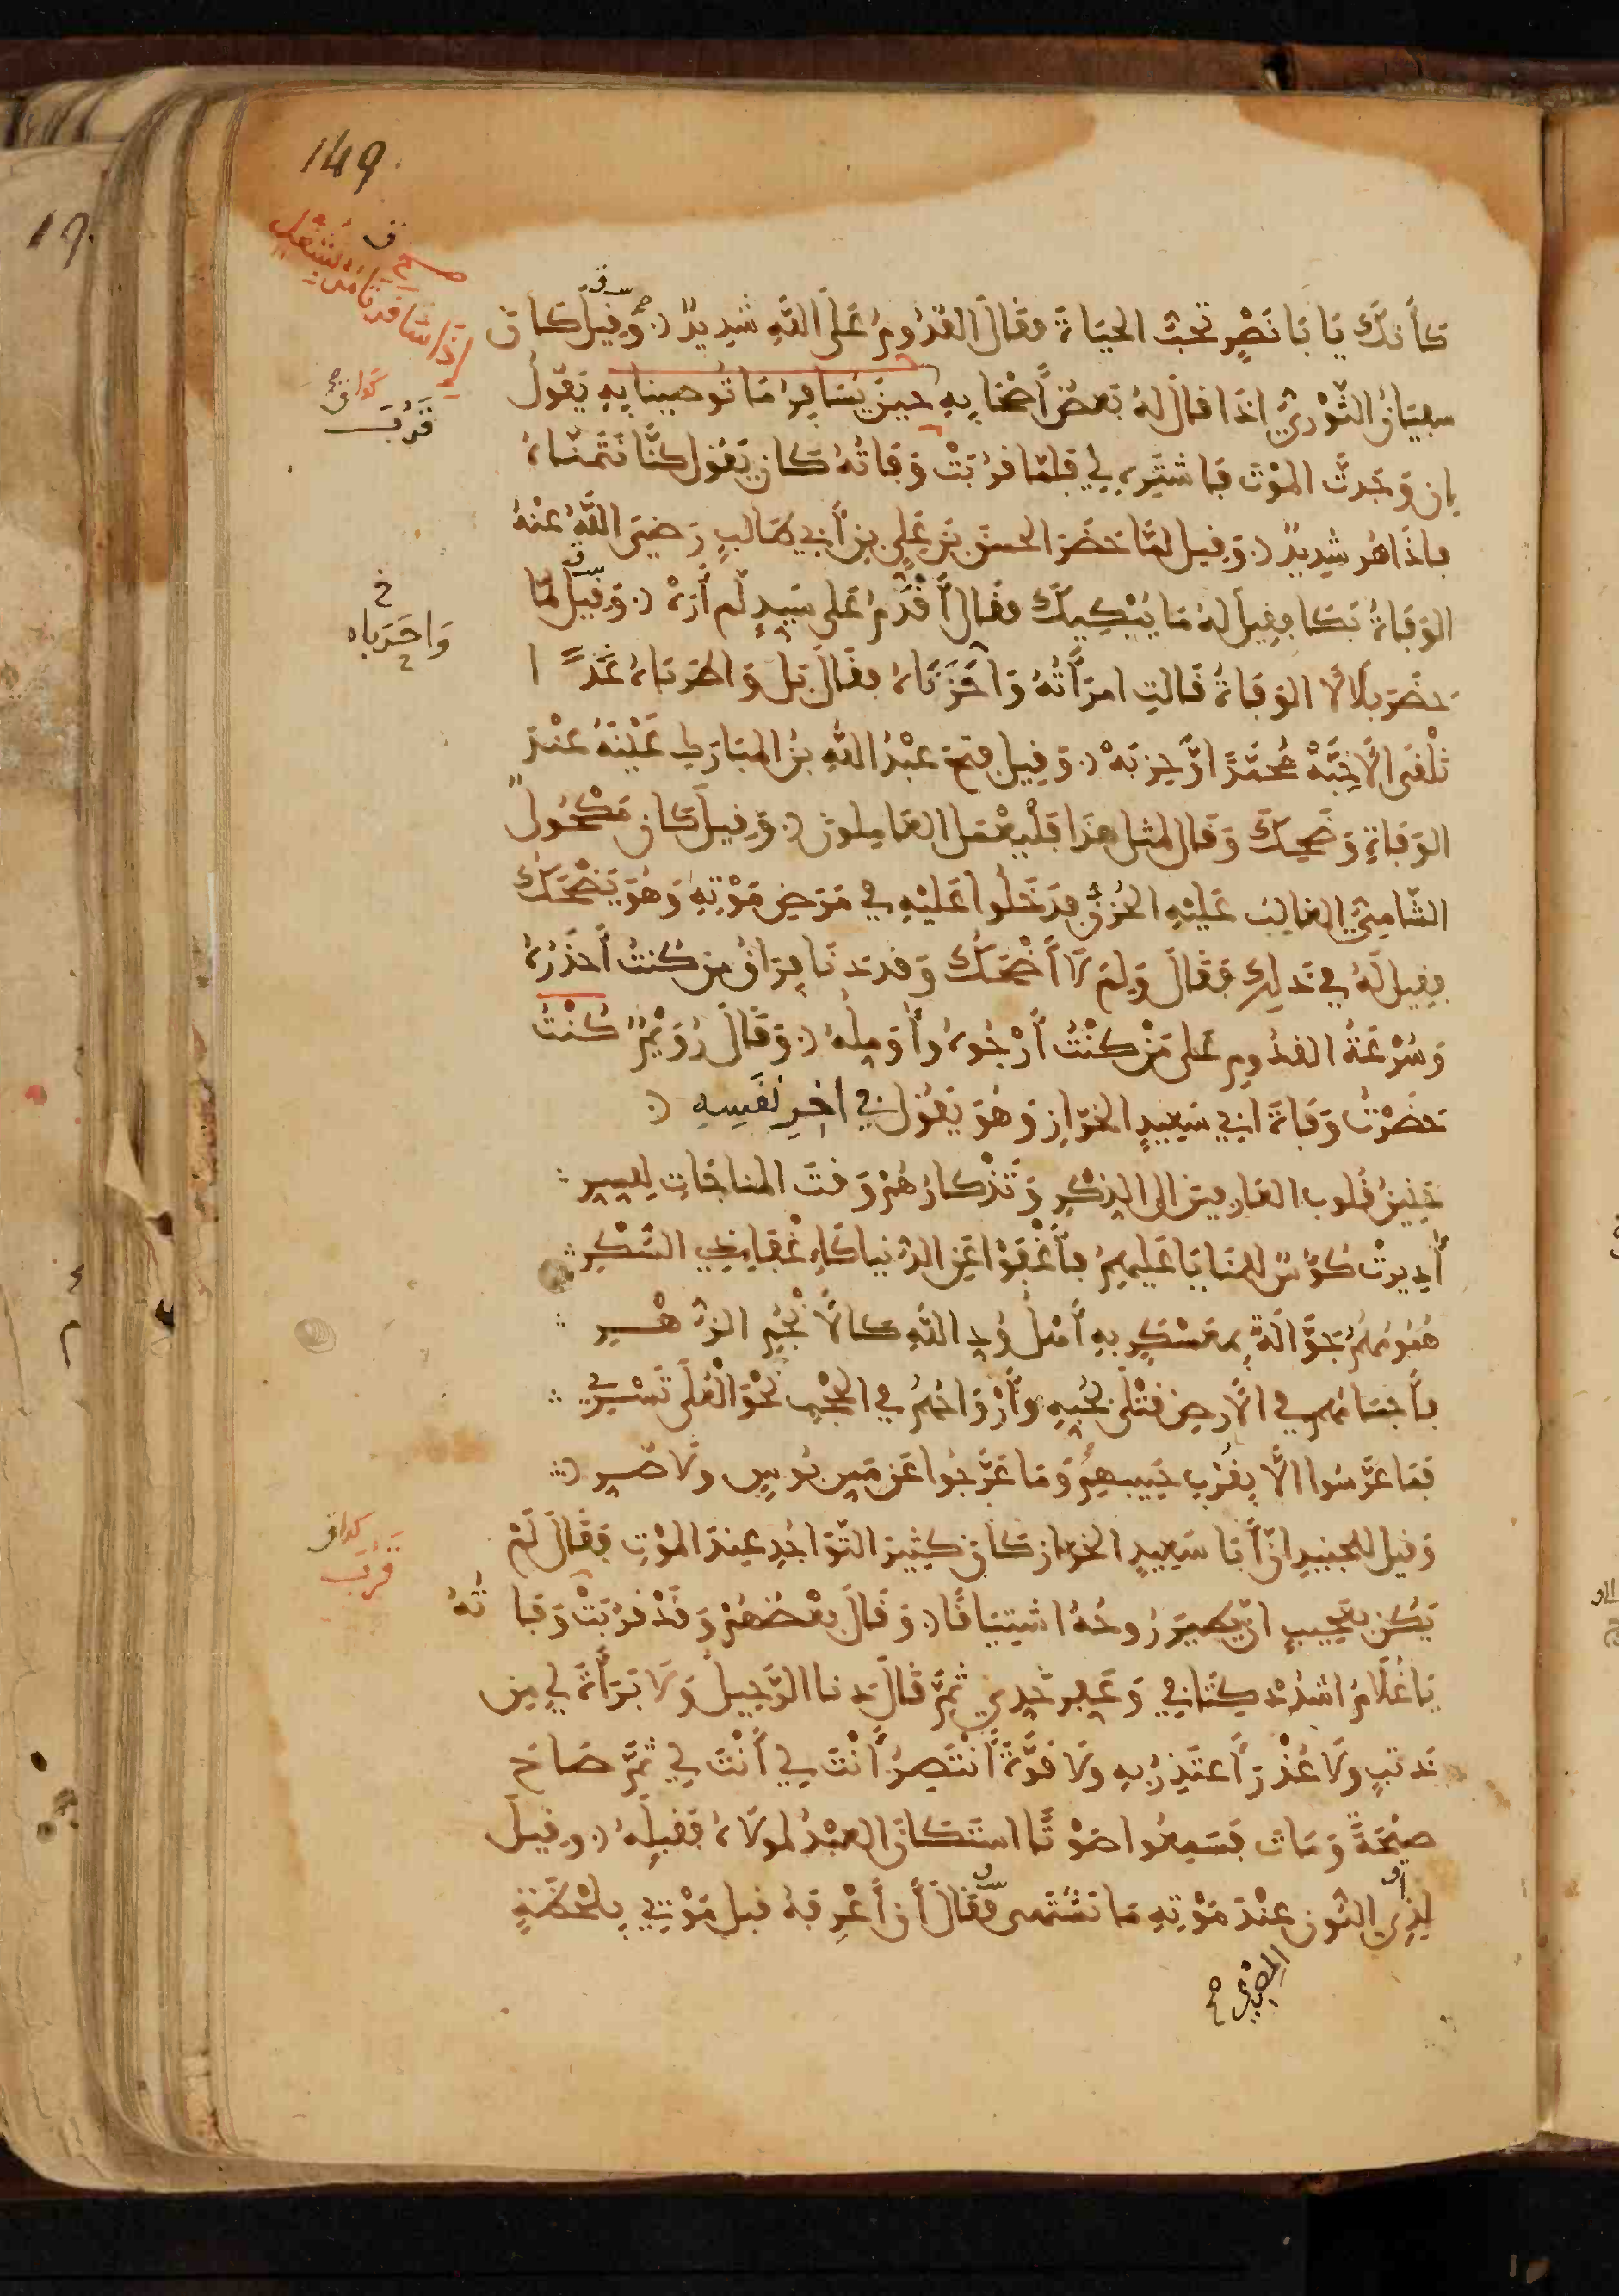 149.
كَأَنَّكَ يَا بَا نَصْرٍ تُحِبُّ الحَيَاةَ فقَالَ القُدُومُ عَلَى اللَّهِ شَدِيدٌ وَقِيلَ كَانَ
سفيَانُ الثَّوْرِيُّ اذَا قَالَ لَهُ بَعْضُ أَصْحَابِهِ حِينَ يُسَافِرُ مَا تُوصِينَا بِهِ يَقُولُ
إن وَجَدتَّ المَوْتَ فَاشْتَرِهِ لِي فَلَمَّا قَرُبَتْ وَفَاتُهُ كَانَ يَقُول كُنَّا نَتَمَنَّاهُ
فإذَا هُو شَدِيدٌ وَقِيلَ لمَّا حَضَرَ الحسَنَ بْنَ عَلِي بن أَبِي طَالبٍ رَضِيَ اللَّهُ عَنْهُ
الوَفَاةُ بَكَا فقِيلَ لهُ مَا يُبْكِيكَ فقَالَ أَقْدَمُ عَلى سَيِّدٍ لَم أَرَهْ وَقِيلَ لمَّا
حَضَرَ بِلَالًا الوَفَاةُ قَالتِ امرَأَتُهُ وَاحَزَنَاهُ فقَالَ بَل وَاطَرَبَاهُ غَدًا
نَلْقَى الأَحِبَّهْ مُحَمَّدًا وَّحِزبَهْ وَقِيلَ فتحَ عَبْدُ اللهِ بنُ المبَارَكِ عَيْنَهُ عِنْدَ
الوَفَاةِ وَضَحِكَ وَقَال لمثل هَذَا فَلْيَعْمَلِ العَامِلُونَ وَقِيلَ كَانَ مَكْحُولٌ
الشَّامِيُّ الغَالِبَ عَلَيْهِ الحُزْنُ فدَخَلُوا عَلَيْهِ فِي مَرَضِ مَوْتِهِ وَهُوَ يَضْحَكُ
فقِيلَ لَهُ فِي ذَلِكَ فَقَالَ وَلِمَ لَا أَضْحَكُ وَقد دَنَا فِرَاقُ مَن كُنتُ أَحْذَرُهُ
وَسُرْعَةُ القدُومِ عَلى مَنْ كُنْتُ أَرْجُوهُ وأُومِلُهُ وَقَالَ رُوَيْمٌ كُنْتُ
حَضَرْتُ وَفَاةَ ابِي سَعِيدٍ الخَرَّازِ وَهُوَ يَقُول فِي اخِرِ نَفَسِهِ
حَنِينُ قُلوبِ العَارِفِينَ الى الذِّكْرِ وَتَذْكارُهُمْ وَقتَ المنَاجَاتِ لِلسِّرِ
أُدِيرتْ كُؤُسٌ للمَنَايَا عَلَيهِمُ فأَغْفَوْا عَنِ الدُّنيا كَإِغْفَاءِ ذِي السُّكْرِ
هُمُومُهُمُ جَوَّالَةٌ بِمَعَسْكَرٍ بِهِ أَهْلُ وُدِّ اللَّهِ كالأَنْجُمِ الزُّهْرِ
فأَجسَامُهُم فِي الأَرضِ قَتْلَى بِحُبِّهِ وأَرْوَاحُهُمْ فِي الحُجْبِ نَحْوَ الْعُلَى تَسْرِي
فَمَا عَرَّسُوا الَّا بِقُرْبِ حَبِيبِهِمُ وَمَا عَرَّجُوا عَن مَسِّ بُوسٍ ولَا ضُرِ
وَقيل للجنيدِ انَّ أَبَا سَعِيدٍ الخرّاز كَانَ كثِيرَ التَّوَاجُدِ عِندَ المَوْتِ فقَالَ لَمْ
يَكُن بعَجِيبٍ ان يطِيرَ رُوحُهُ اشتِيَاقًا وَقَالَ بَعْضُهُمْ وَقَدْ قرُبَتْ وَفَاتُهُ
يَا غُلَامُ اشدُدْ كِتَافِي وَعَفِّر خَدِي ثُمَّ قَالَ دَنا الرَّحِيلُ وَلَا بَرَاءَةَ لِي مِن
ذَنبٍ ولَا عُذْرَ أَعتَذِرُ بِهِ ولَا قُوَّةَ أَنْتَصِرُ أَنْتَ لِي أَنْتَ لِي ثُمَّ صَاحَ
صَيْحَةً وَمَاتَ فَسَمِعُوا صَوْتًا استَكَانَ العَبْدُ لمَولَاهُ فَقَبِلَهُ وقِيلَ
لِذِي النُّونِ عِنْدَ مَوْتِهِ مَا تَشْتَهى فَقَالَ أَن أَعْرِفَهُ قبل مَوْتِي بِلَحْظَةٍ
المِصْرِي صح
إذا سَافرنا مِن شُغل
قَرُبَ
خ
وَاحَرَبَاه
قَرُبَ